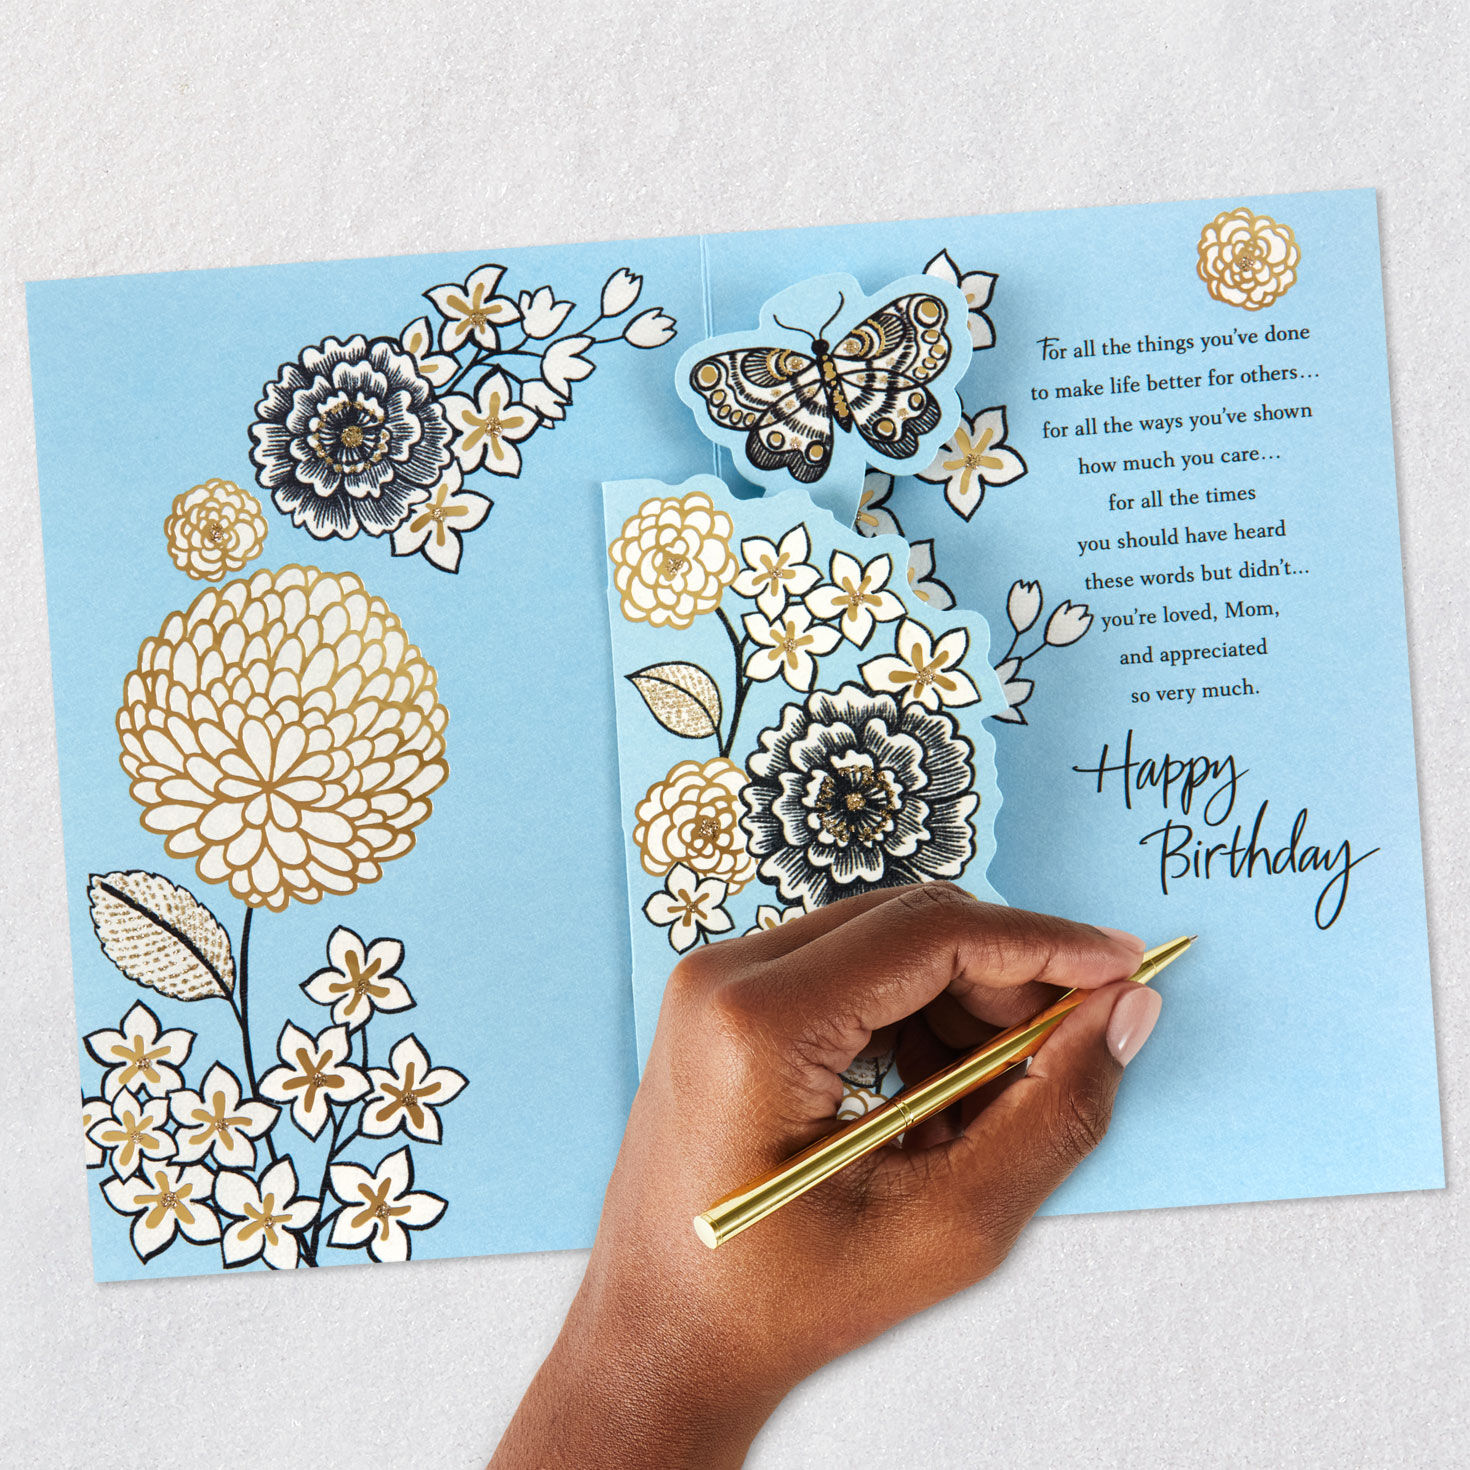 For all the things you've done
to make life better for others...
for all the ways you've shown
how much you care...
for all the times
you should have heard
these words but didn't...
you're loved, Mom,
and appreciated
so very much.
Happy
Birthday